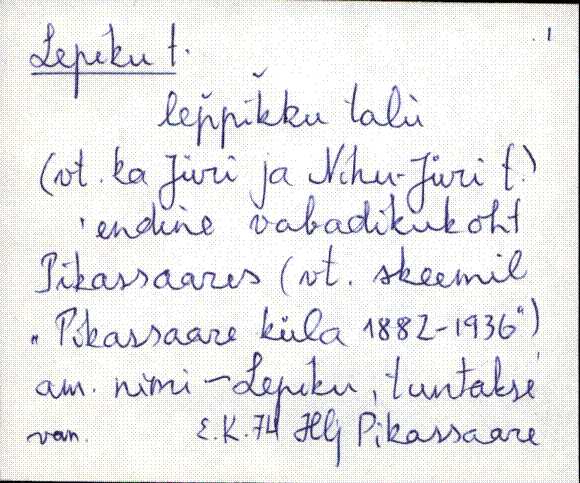 Lepiku t. 1
lep̌pik̆ku talù
(vt. ka Jüri ja Nihu-Jüri t.)
'endine vabadikukoht
Pikassaares (vt. skeemil
„Pikassaare küla 1882-1936")
am. nimi - Lepiku, tuntakse
van. E.K.74 Hlj Pikassaare